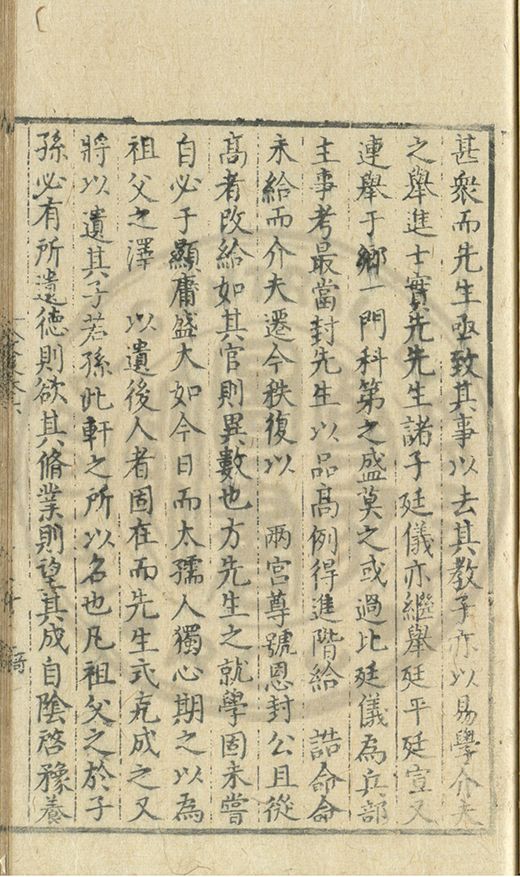 甚衆而先生亟致其事以去其教子亦以易學介夫
之舉進士實先先生諸子廷儀亦繼舉廷平廷宣又
連舉于鄉一門科第之盛莫之或過比廷儀為兵部
主事考最當封先生以品高例得進階給　誥命命
未給而介夫遷今秩復以　兩宮尊號恩封公且從
高者改給如其官則異數也方先生之就學固未嘗
自必于顯庸盛大如今日而太孺人獨心期之以為
祖父之澤　以遺後人者固在而先生式克成之又
將以遺其子若孫此軒之所以名也凡祖父之於子
孫必有所遺德則欲其脩業則望其成自陰啓豫養